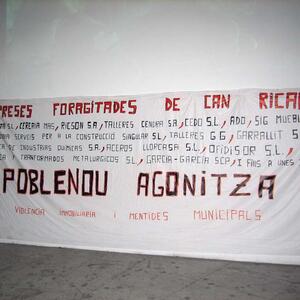 PRESES FORAGITADES DE CAN RICAR
S.L, CERERIA MAS, RICSON S.A, TALLERES CENDRA S.A, CEDO S.L, ADO, SIG MUEBL
SERVEIS PER A LA CONSTRUCCIO SINGULAR S.L, TALLERES G G, GARRALLIT S.
CA DE INDUSTRIAS QUIMICAS S.A, ACEROS LLORCASA S.L, OFIDISOR S.L,
A Y TRANFORMADOS METALURGICOS S.L, GARCIA-GARCIA SCP, I FINS A UNES
POBLENOU AGONITZA
VIOLENCIA IMMOBILIARIA I MENTIDES MUNICIPALS